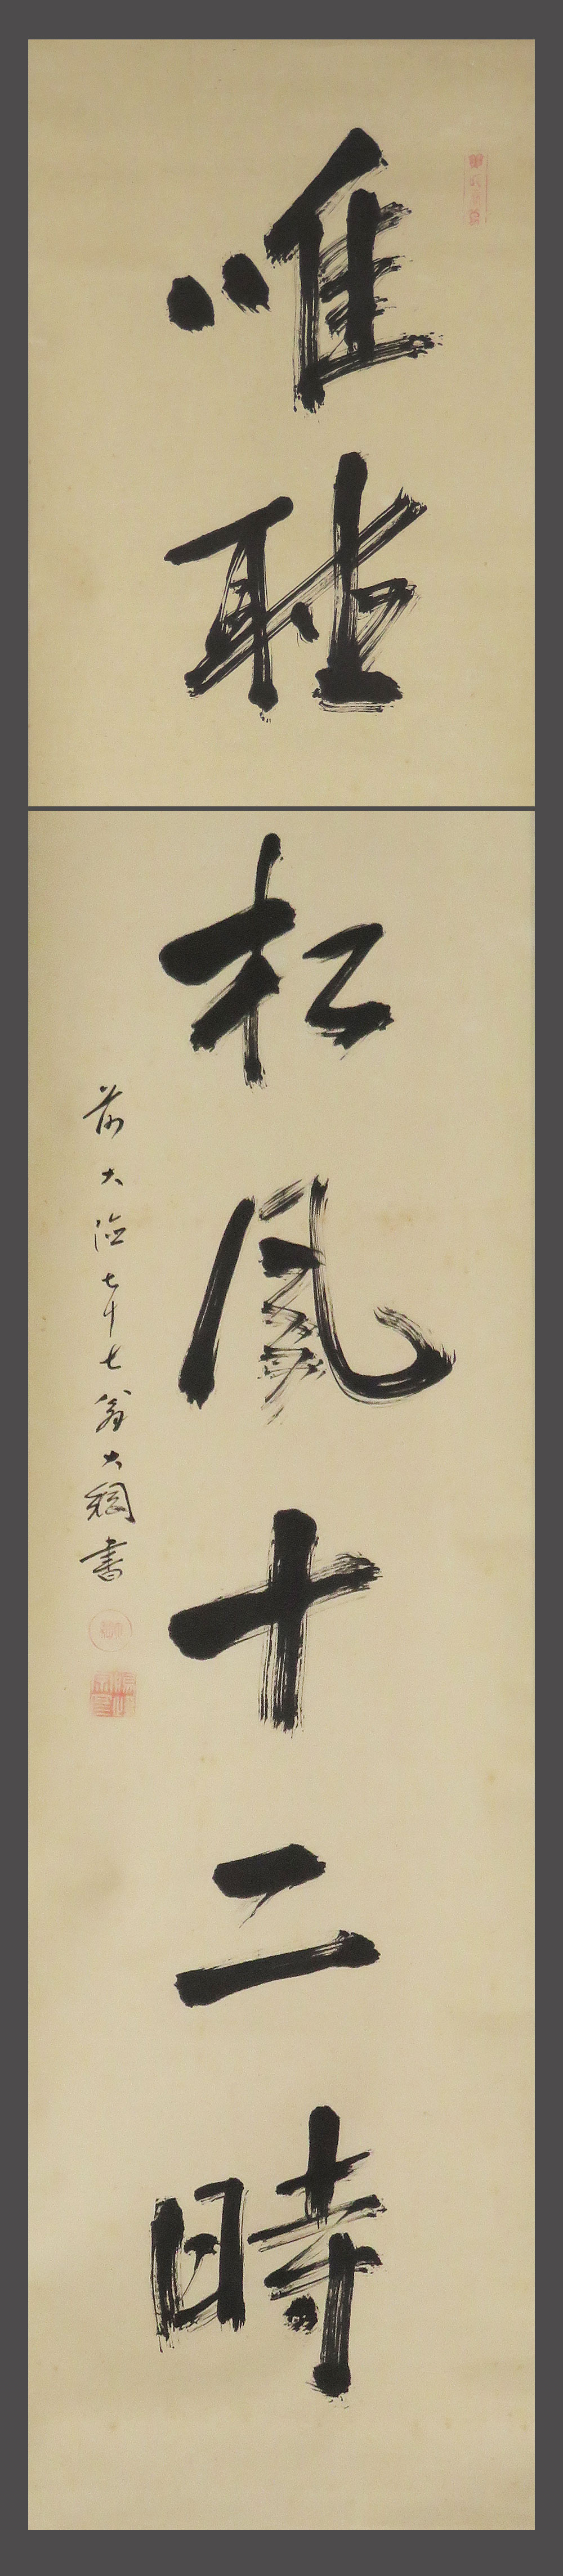 唯聴松風十二時
前大徳七十七翁大綱書